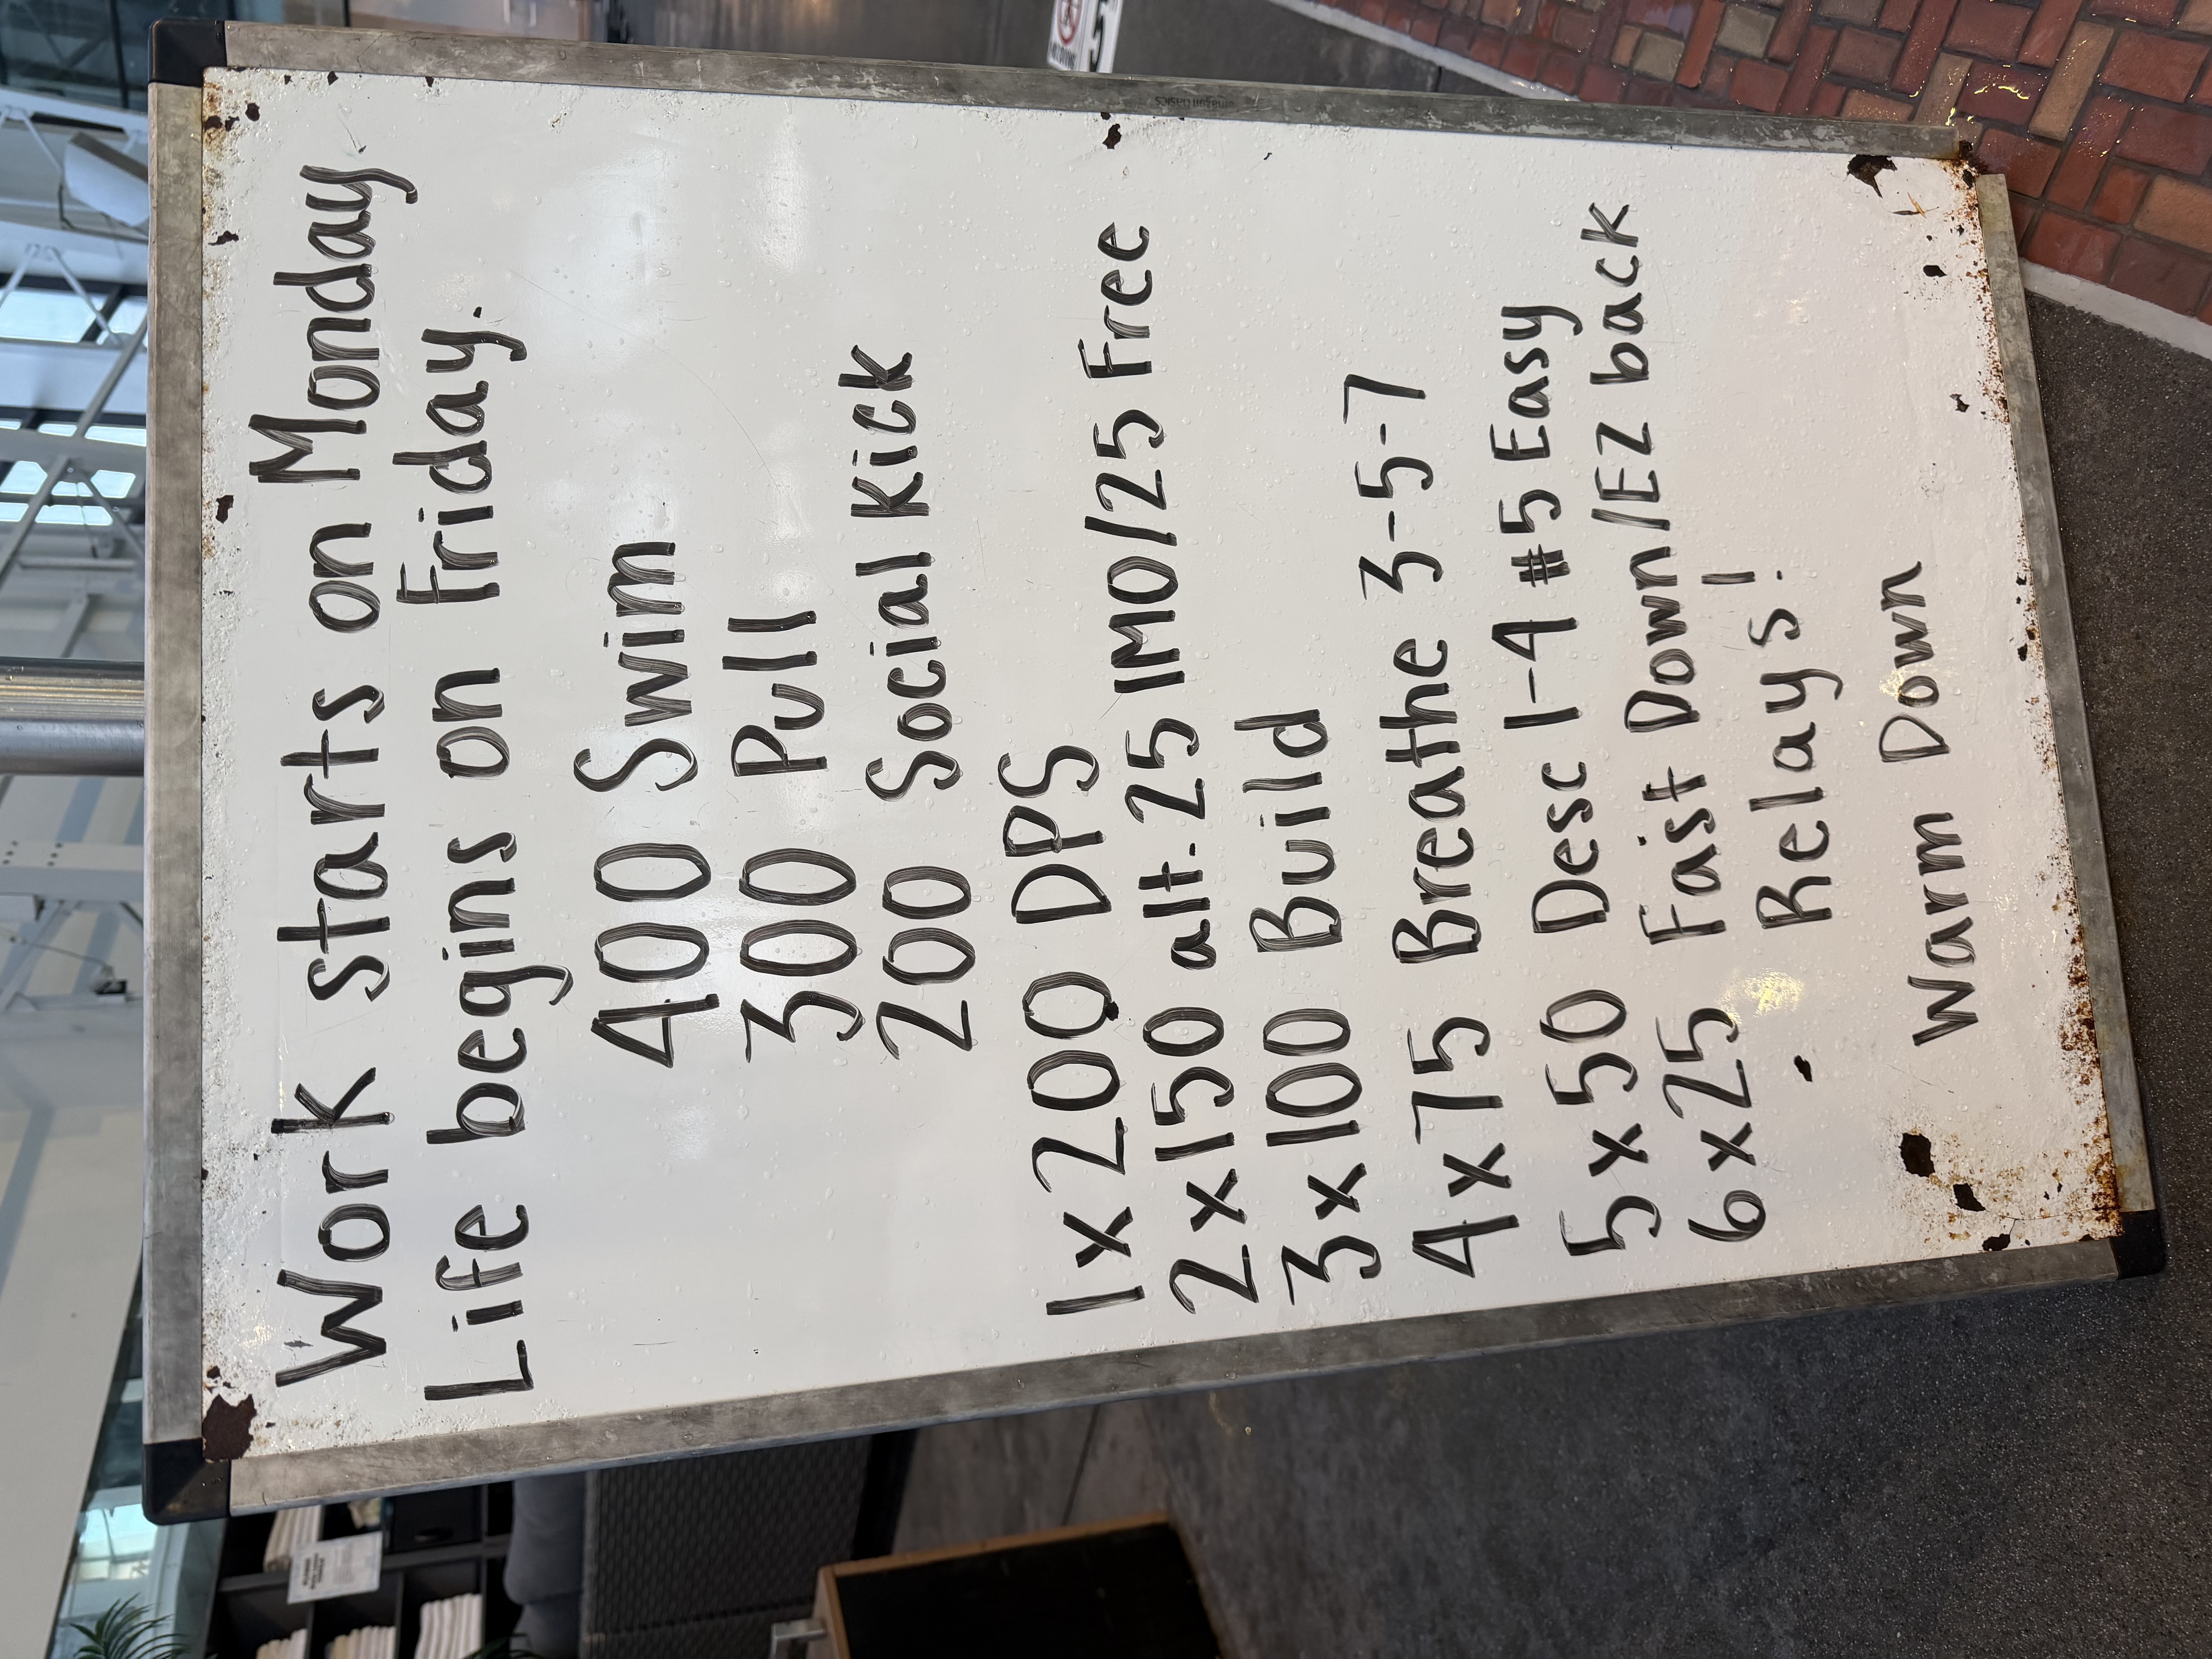 Work starts on Monday
Life begins on Friday.
400 Swim
300 Pull
200 Social Kick
1x200 DPS
2x150 alt. 25 IMO/25 Free
3x100 Build
4x75 Breathe 3-5-7
5x50 Desc 1-4 #5 Easy
6x25 Fast Down/EZ back
Relays!
Warm Down
amazon basics